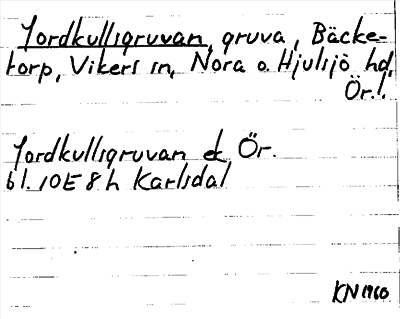 Jordkullsgruvan, gruva, Bäcke-
torp, Vikers sn, Nora o. Hjulsjö hd,
Ör.l.
Jordkullsgruvan ek Ör.
bl. 10E 8h Karlsdal
KN 1960